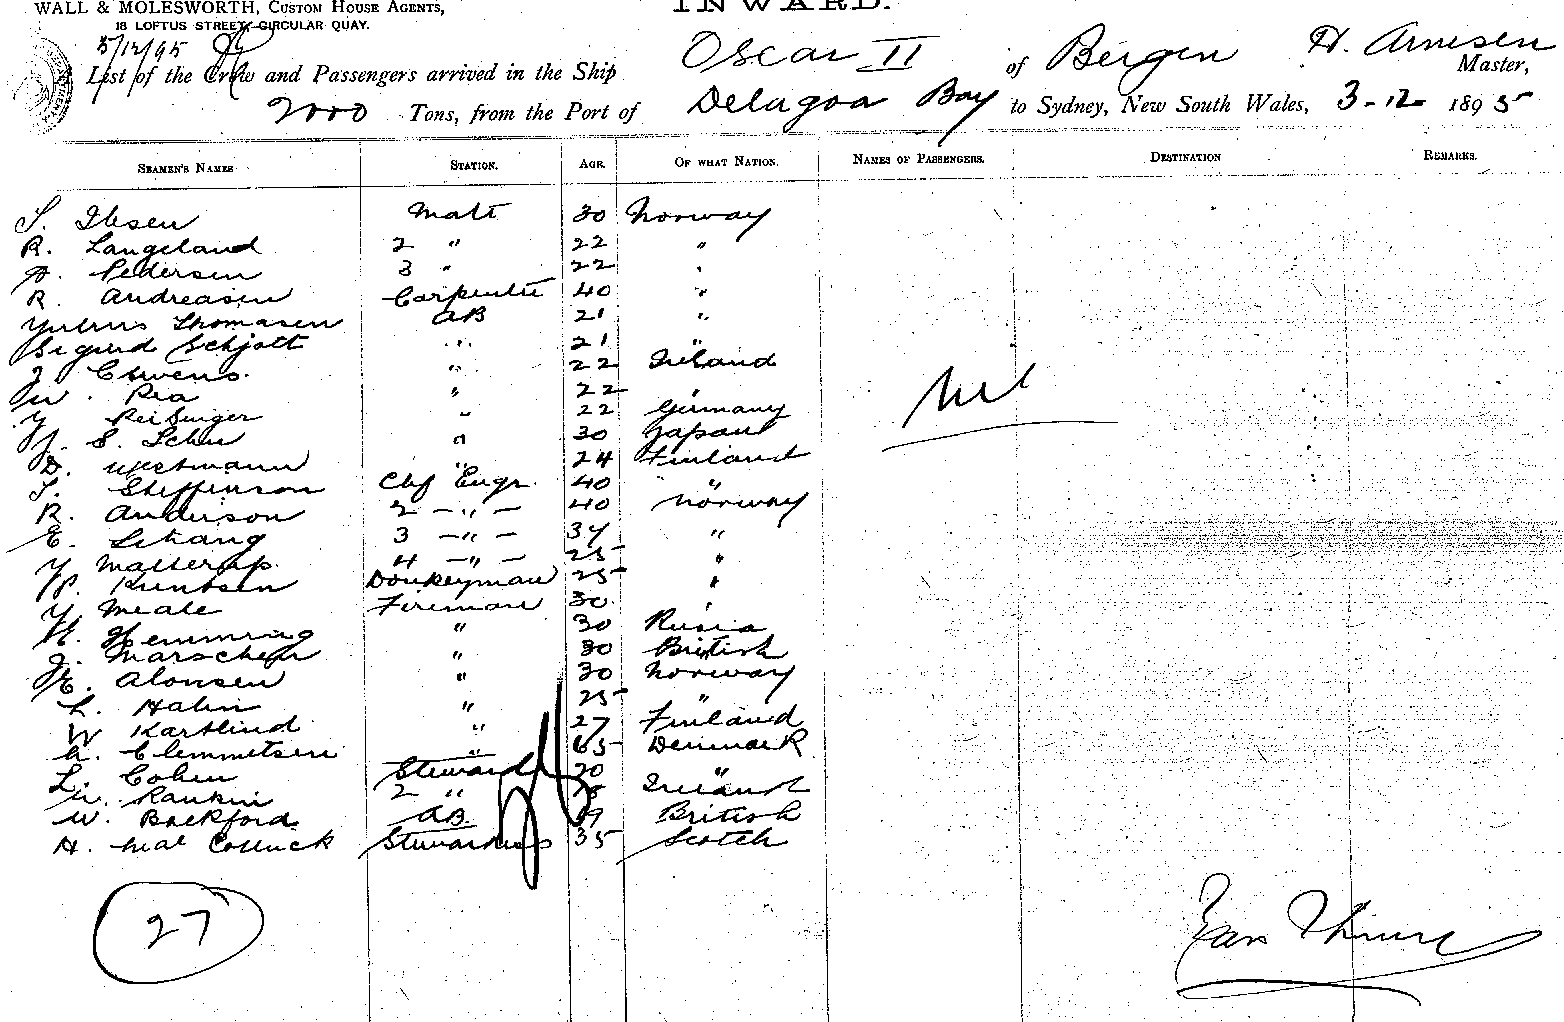 INWARD.
WALL & MOLESWORTH, CUSTOM HOUSE AGENTS,
18 LOFTUS STREET, CIRCULAR QUAY.
5/12/95
List of the Crew and Passengers arrived in the Ship Oscar II of Bergen H. Arnesen Master,
2000 Tons, from the Port of Delagoa Bay to Sydney, New South Wales, 3-12 1895
SEAMEN'S NAMES STATION. AGE. OF WHAT NATION. NAMES OF PASSENGERS. DESTINATION REMARKS.
S. Ibsen Mate 30 Norway
R. Langeland 2 " 22 "
A. Pedersen 3 " 22 "
R. Andreasen Carpenter 40 "
Thomasen AB 21 "
Sigurd Schjott " 21 "
Owens. " 22 Ireland
W. Rea " 22 "
Reisinger " 22 Germany
S. " 30 Japan
D. Westmann " 24 Finland
S. Steffenson Chf Engr. 40 "
R. Anderson 2 -"- 40 Norway
E. 3 -"- 34 "
4 -"- 25 "
P. Kuntsen Donkeyman 25 "
Meale Fireman 30 "
H. Hemming " 30 Rusia
J. " 30 British
E. Alonsen " 30 Norway
L. Hahn " 25 "
W " 27 Finland
A. Clemmetsen " 65 Denmark
L. Cohen Steward "
W. Rankin 2 " Ireland
W. Backford. AB British
H. Mac Stewardess 35 Scotch
Nil
27